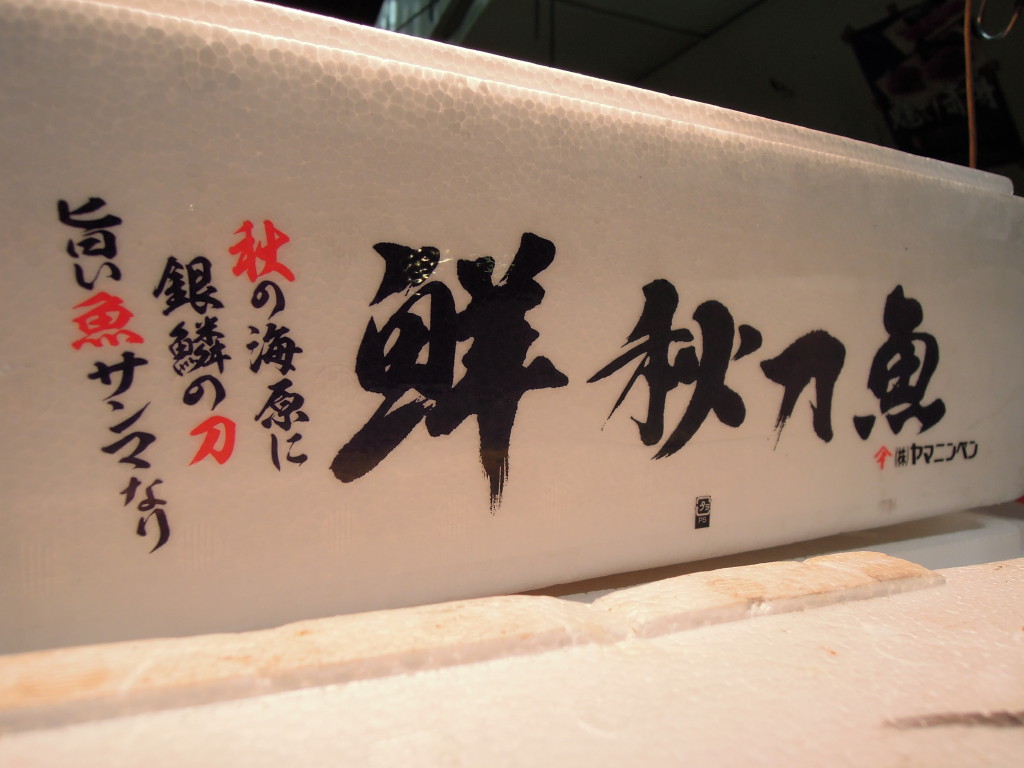 鮮 秋刀魚
秋の海原に
銀鱗の刀
旨い魚サンマなり
(株)ヤマニンベン
プラ
PS